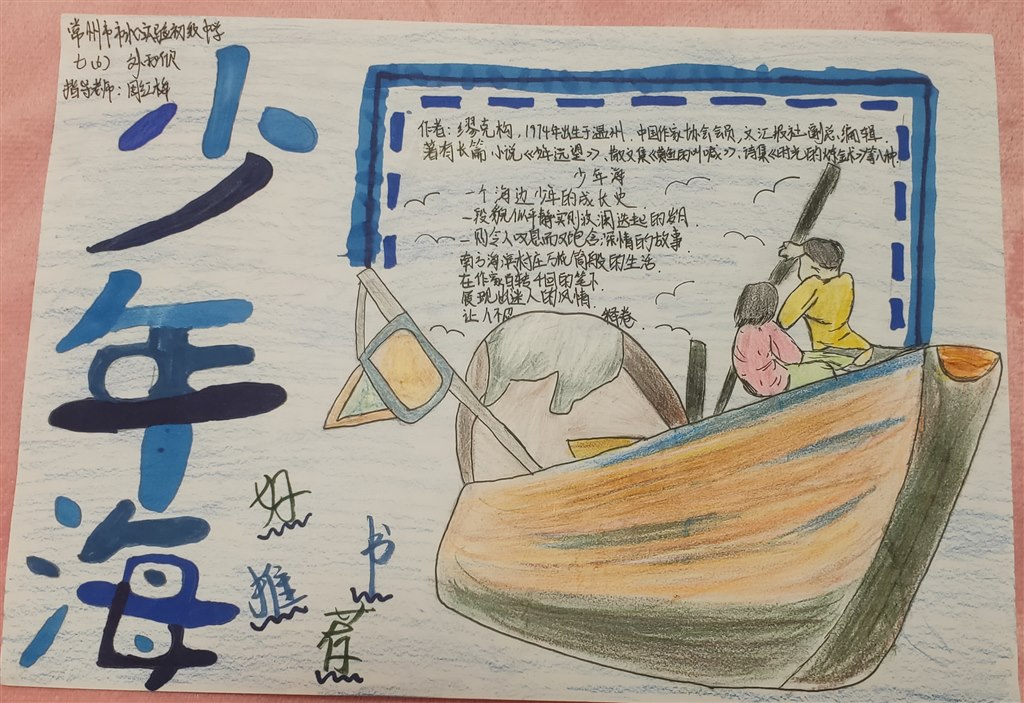 常州市市北实验初级中学
七(6) 刘
指导老师：周红梅
少年海
作者：缪克构，1974年出生于温州，中国作家协会会员，文汇报社副总编辑。
著有长篇小说《少年远望》、散文集《黄鱼的叫喊》、诗集《时光的炼金术》等八种.
少年海
一个海边少年的成长史
一段貌似平静实则波澜迭起的岁月
一则令人叹息而又饱含深情的故事
南方海滨村庄万般的生活
在作家百转千回的笔下
展现出迷人的风情
让人不 释卷.
好书推荐